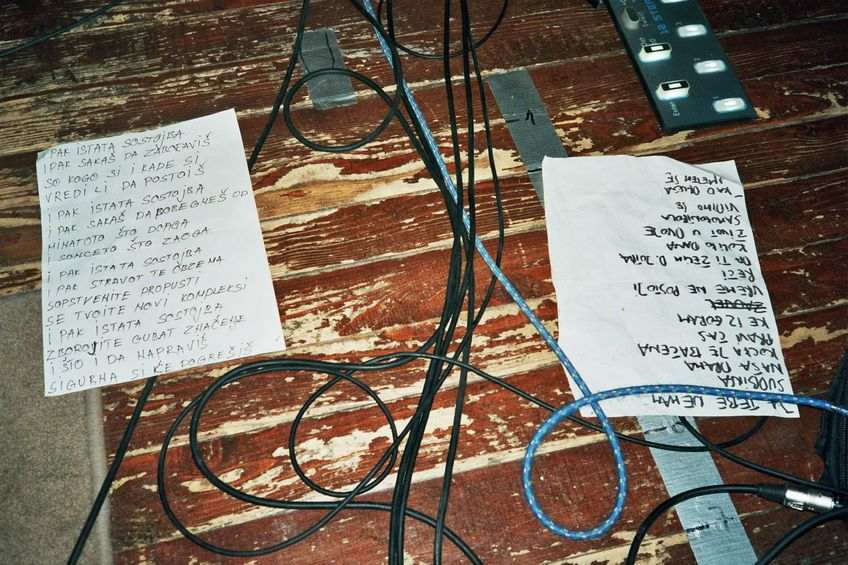 PAK ISTATA SOSTOJBA
I PAK SAKAŠ DA ZABORAVIŠ
SO KOGO SI I KADE SI
VREDI LI DA POSTOIŠ
I PAK ISTATA SOSTOJBA
I PAK SAKAŠ DA POBEGNEŠ OD
MINATOTO ŠTO DOAGA
I SONCETO ŠTO ZAOGA
I PAK ISTATA SOSTOJBA
PAK STRAVOT TE OBZEMA
SOPSTVENITE PROPUSTI
SE TVOITE NOVI KOMPLEKSI
I PAK ISTATA SOSTOJBA
ZBOROJITE GUBAT ZNAČENE
I ŠTO I DA NAPRAVIŠ
SIGURNA SI ĆE POGREŠIŠ
JA TEBE NEMAM
SUDBINA
NAŠA DRAMA
KOCKA JE BAČENA
PRAVI ČAS
KE IZGORAM
VREME NE POSTOJI
REČI
DA TI ŽELIM
KOLKO DANA
ŽIVOT U DVOJE
SAMOKONTROLA
VIDIMO SE
KAD DRUGA
1
10
Enter